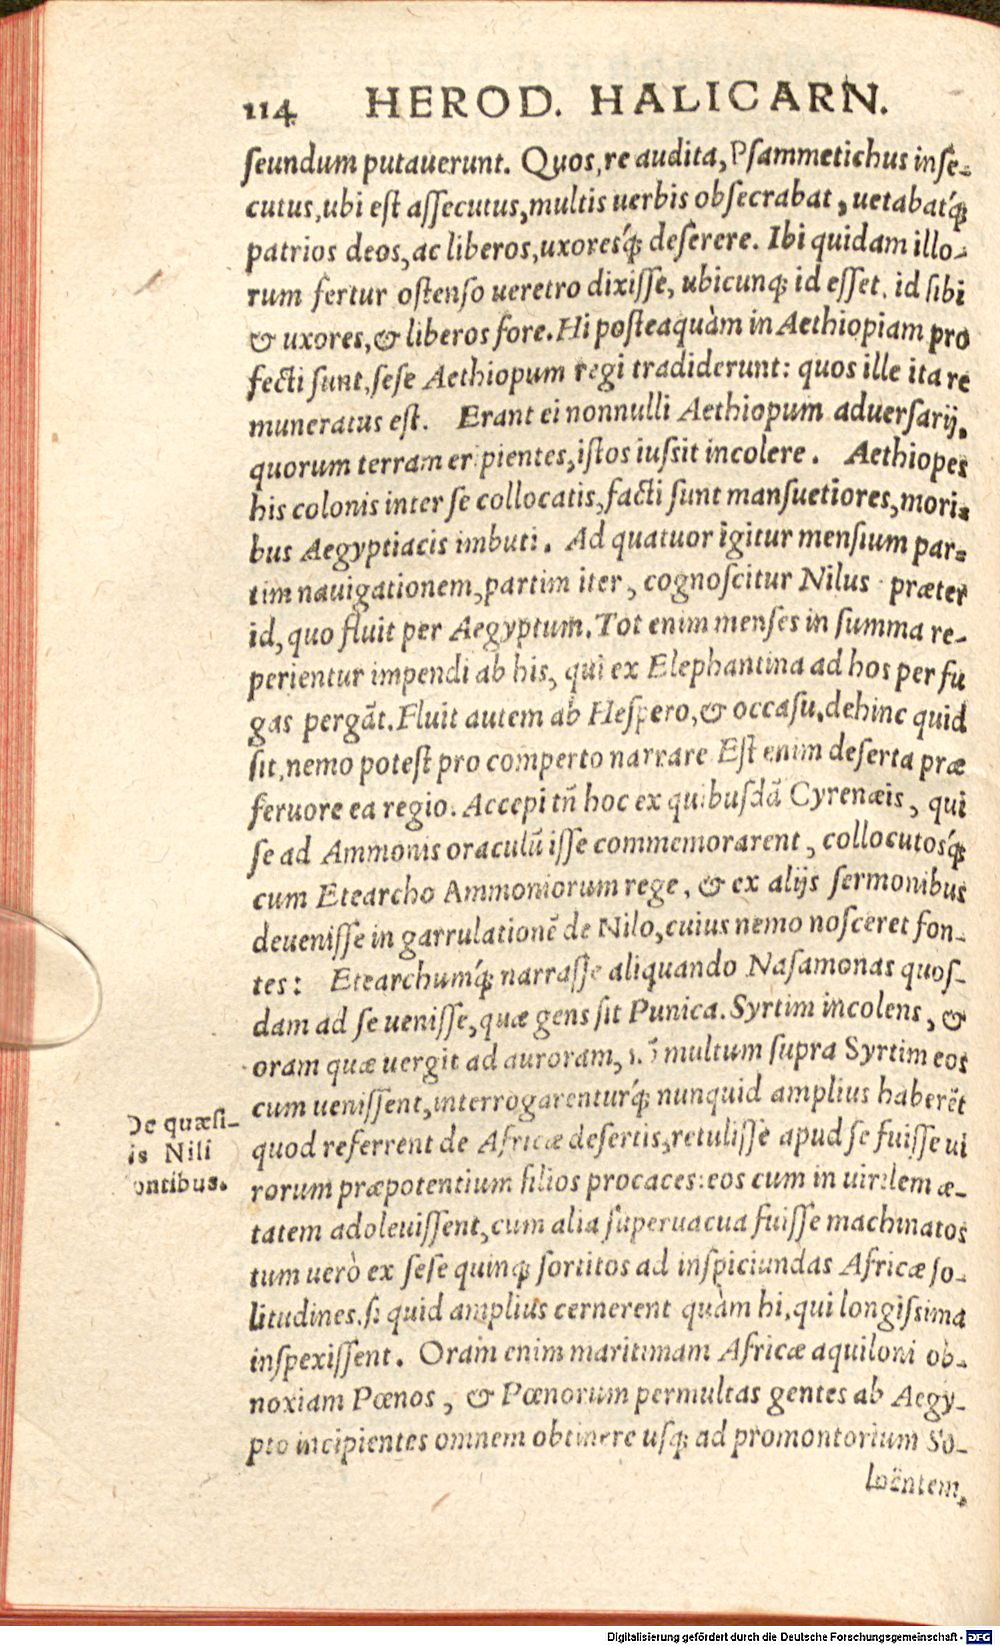 114 HEROD. HALICARN.
ſeundum putauerunt. Quos, re audita, Pſammetichus inſe-
cutus, ubi eſt aſſecutus, multis uerbis obſecrabat, uetabatq́;
patrios deos, ac liberos, uxoresq́; deſerere. Ibi quidam illo-
rum fertur oſtenſo ueretro dixiſſe, ubicunq; id eſſet, id ſibi
& uxores, & liberos fore. Hi poſteaquàm in Aethiopiam pro
fecti ſunt, ſeſe Aethiopum regi tradiderunt: quos ille ita re
muneratus eſt. Erant ei nonnulli Aethiopum aduerſarij,
quorum terram eripientes, iſtos iuſsit incolere. Aethiopes
his colonis inter ſe collocatis, facti ſunt manſuetiores, mori-
bus Aegyptiacis imbuti. Ad quatuor igitur menſium par-
tim nauigationem, partim iter, cognoſcitur Nilus præter
id, quo fluit per Aegyptum. Tot enim menſes in ſumma re-
perientur impendi ab his, qui ex Elephantina ad hos per fu
gas pergãt. Fluit autem ab Heſpero, & occaſu, dehinc quid
ſit, nemo poteſt pro comperto narrare Eſt enim deſerta præ
feruore ea regio. Accepi tñ hoc ex quibuſdã Cyrenæis, qui
ſe ad Ammonis oraculũ iſſe commemorarent, collocutosq́;
cum Etearcho Ammoniorum rege, & ex alijs ſermonibus
deueniſſe in garrulationẽ de Nilo, cuius nemo noſceret fon-
tes: Etearchumq́; narraſſe aliquando Naſamonas quoſ-
dam ad ſe ueniſſe, quæ gens ſit Punica. Syrtim incolens, &
oram quæ uergit ad auroram, nõ multum ſupra Syrtim eos
cum ueniſſent, interrogarenturq́; nunquid amplius haberẽt
quod referrent de Africæ deſertis, retuliſſe apud ſe fuiſſe ui
rorum præpotentium filios procaces: eos cum in uirilem æ-
tatem adoleuiſſent, cum alia ſuperuacua fuiſſe machinatos
tum uerò ex ſeſe quinq; ſortitos ad inſpiciundas Africæ ſo-
litudines, ſi quid amplius cernerent quàm hi, qui longiſsima
inſpexiſſent. Oram enim maritimam Africæ aquiloni ob-
noxiam Pœnos, & Pœnorum permultas gentes ab Aegy-
pto incipientes omnem obtinere uſq; ad promontorium So-
loëntem,
De quæſi-
is Nili
ontibus.
Digitalisierung gefördert durch die Deutsche Forschungsgemeinschaft - DFG